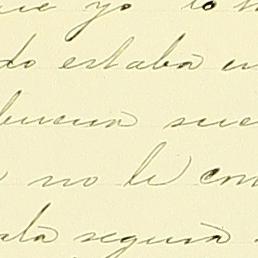 que yo lo
do estaba en
buena sue
no le con
ala seguia